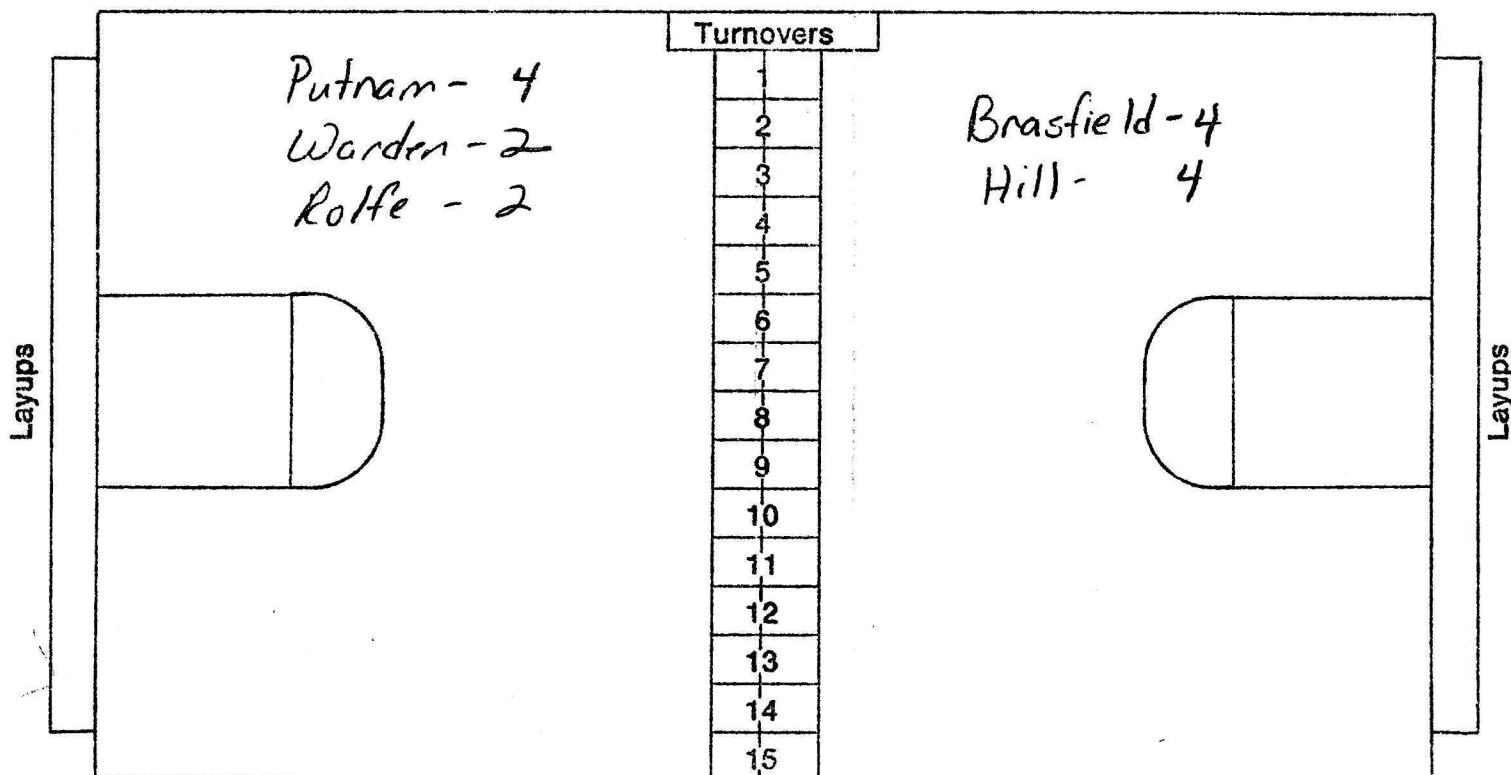 Turnovers
Putnam - 4
Warden - 2
Rolfe - 2
Brasfield - 4
Hill - 4
1
2
3
4
5
6
7
8
9
10
11
12
13
14
15
Layups
Layups